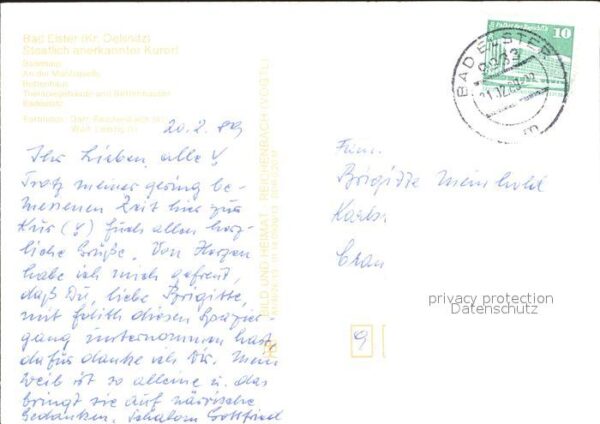 Bad Elster (Kr. Oelsnitz)
Staatlich anerkannter Kurort
Badehaus
An der Moritzquelle
Bettenhaus
Therapiegebäude und Bettenhäuser
Badeplatz
20.2.89
Ihr Lieben, alle 4
Trotz meiner gering be-
messenen Zeit hier zur
Kur (4) Euch allen herz-
liche Grüße. Von Herzen
habe ich mich gefreut,
daß Du, liebe Brigitte,
mit diesen Spazier-
gang unternommen hast,
dafür danke ich Dir. Mein
Weib ist so alleine u. das
bringt sie auf närrische
Gedanken. Schalom Gottfried
BILD UND HEIMAT REICHENBACH (VOGTL)
10
BAD ELSTER
9933
Fam.
Brigitte Meinhold
9
privacy protection
Datenschutz